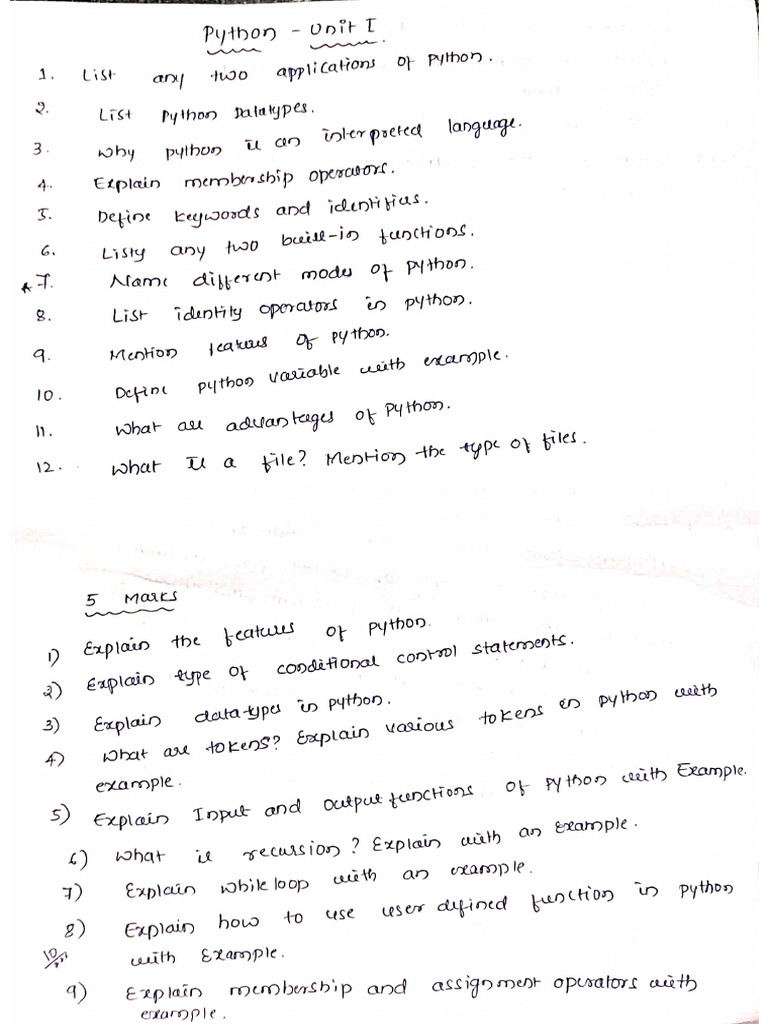 Python - Unit I
1. List any two applications of Python.
2. List Python Datatypes.
3. Why python is an interpreted language.
4. Explain membership operators.
5. Define keywords and identifies.
6. Listy any two built-in functions.
*7. Name different modes of Python.
8. List identity operators in python.
9. Mention features of Python.
10. Define python variable with example.
11. What are advantages of Python.
12. What is a file? Mention the type of files.
5 Marks
1) Explain the features of Python.
2) Explain type of conditional control statements.
3) Explain data types in python.
4) What are tokens? Explain various tokens in python with
example.
5) Explain Input and output functions of Python with Example.
6) What is recursion? Explain with an Example.
7) Explain while loop with an example.
8) Explain how to use user defined function in python
10/m with Example.
9) Explain membership and assignment operators with
example.